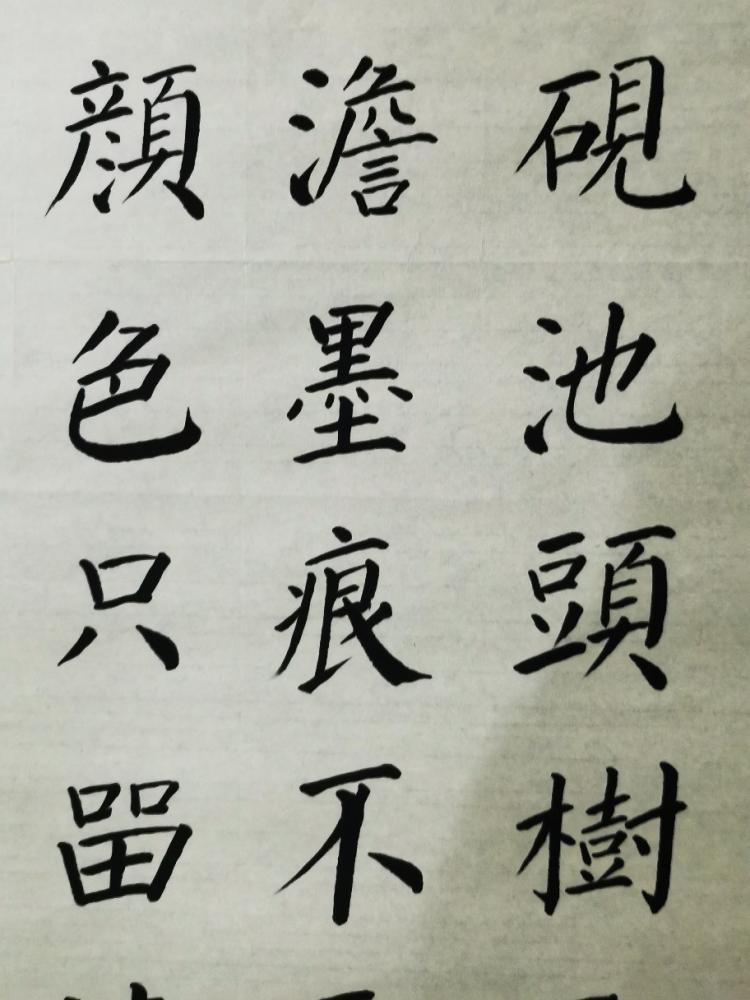 硯池頭樹
澹墨痕不
顔色只㽞